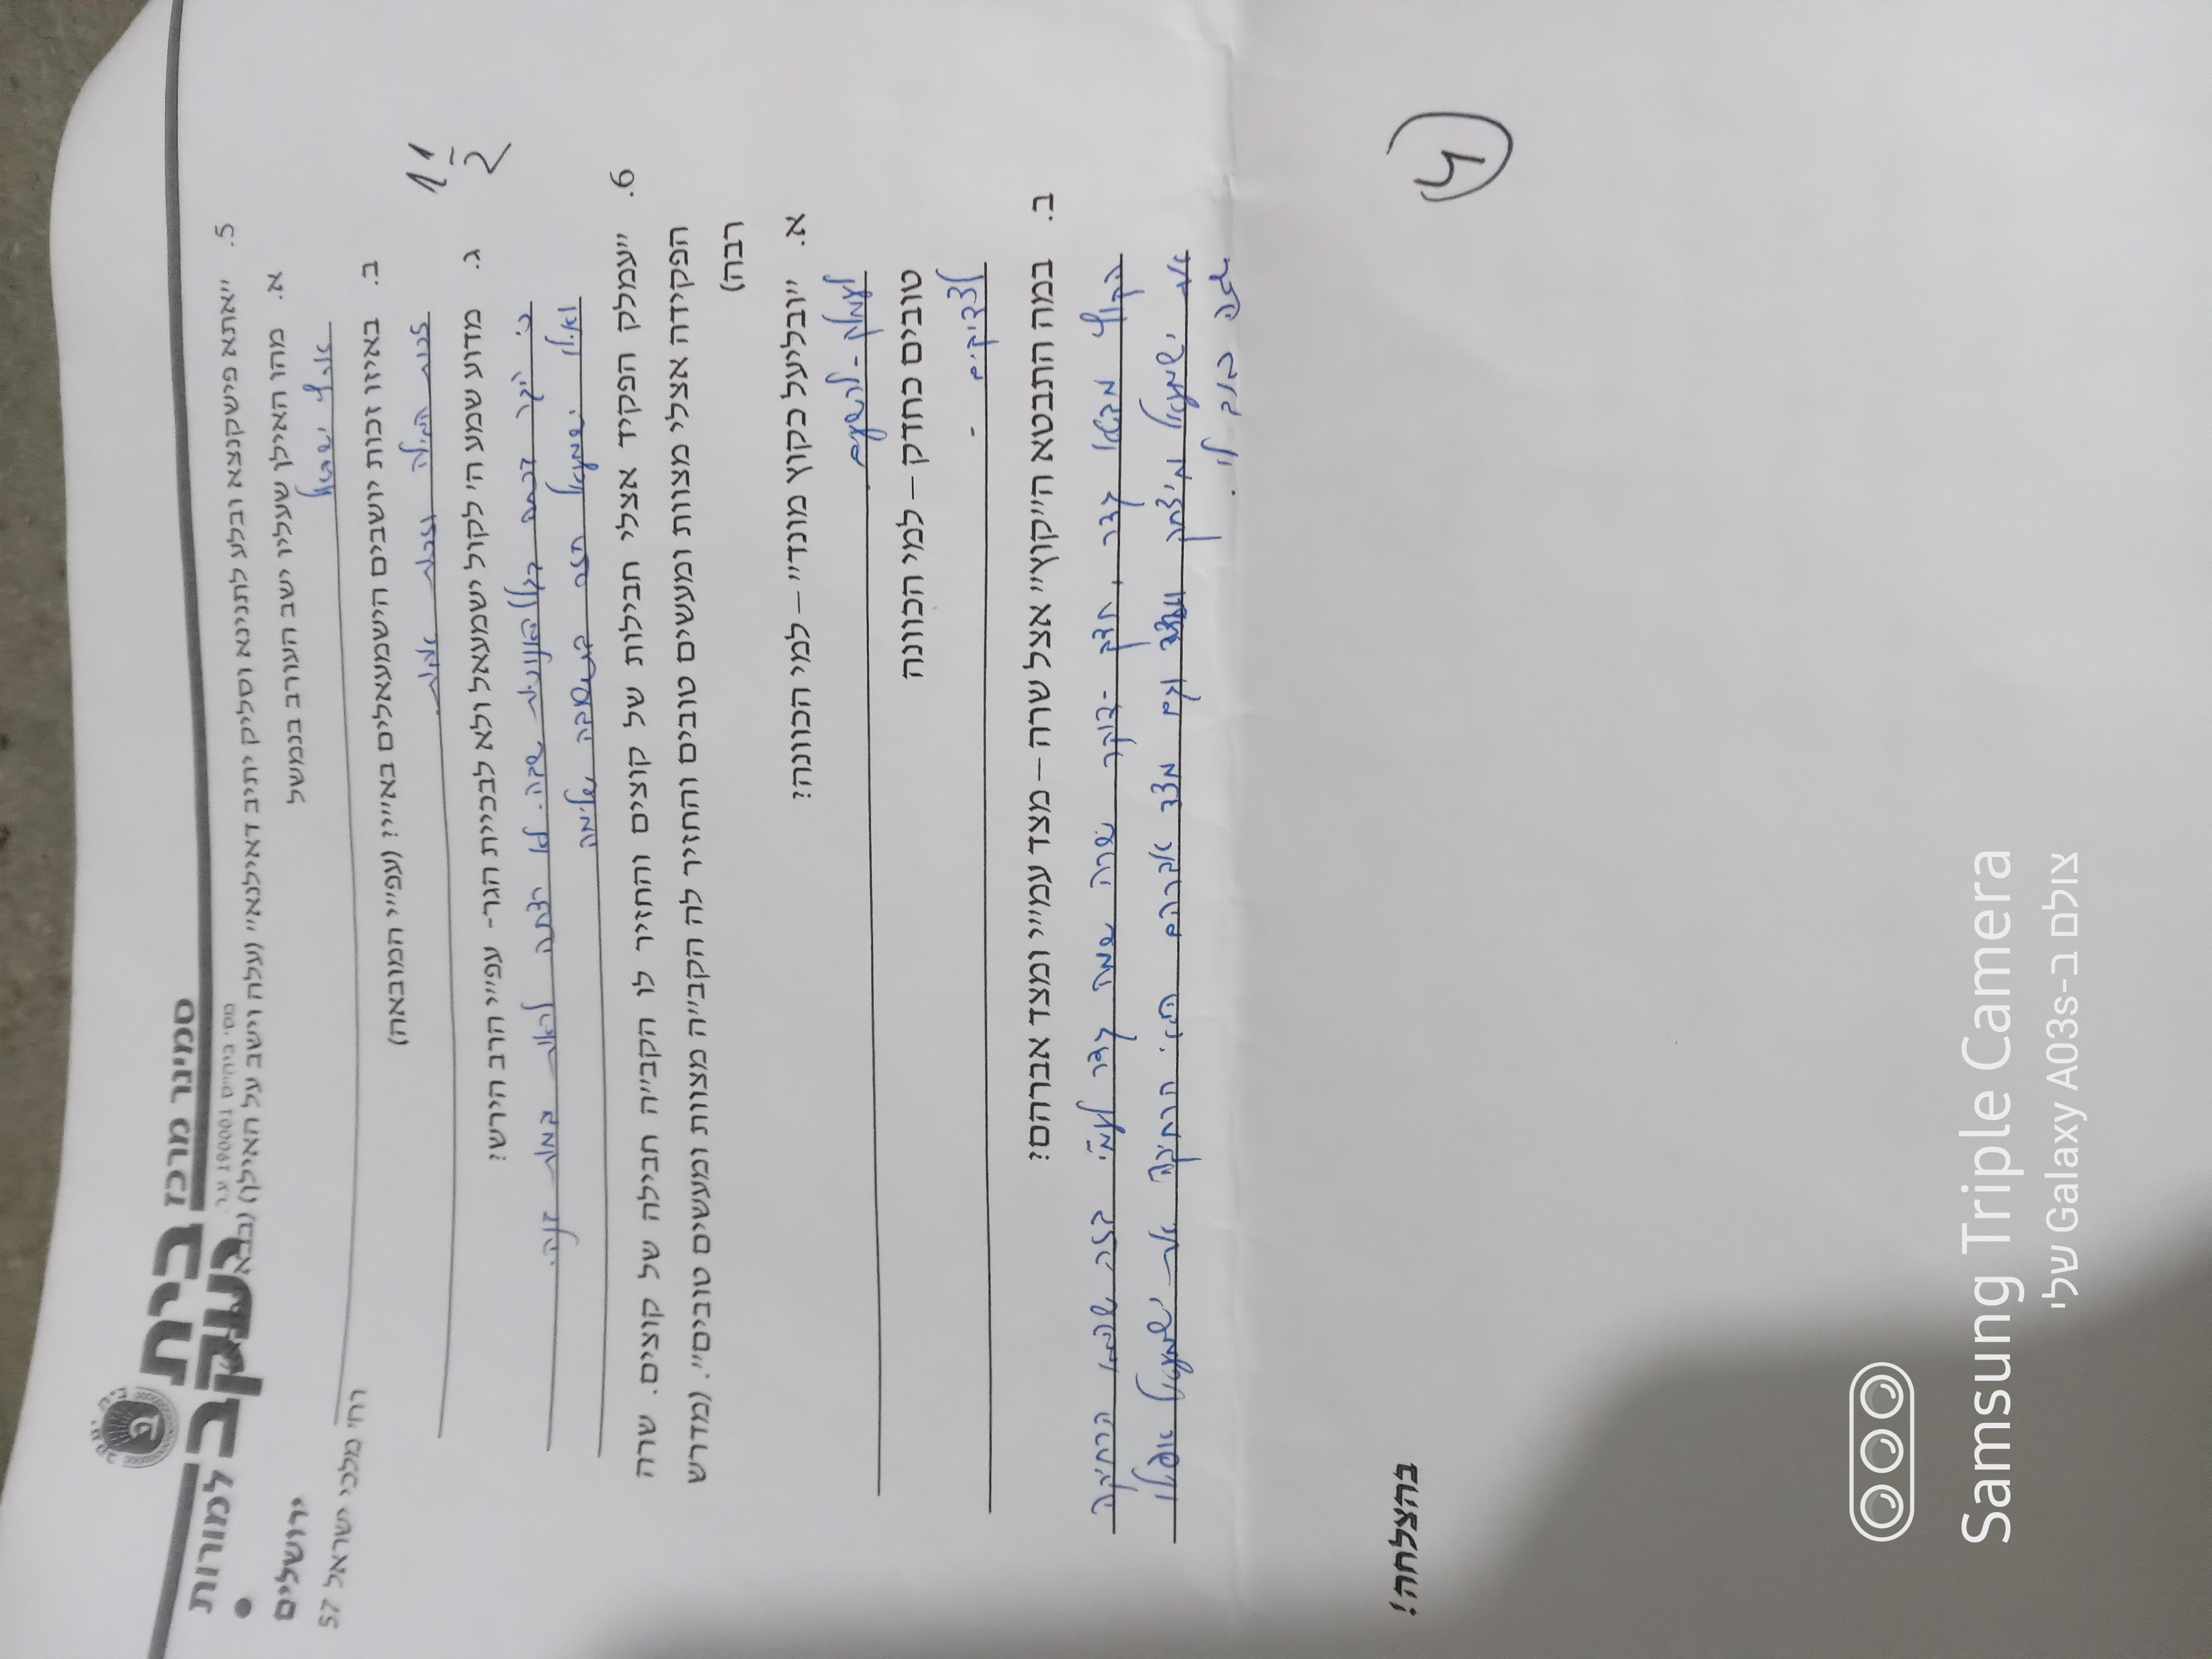 סמינר מרכז
בית
יעקב
למורות
מס' ביה"ס 190001 ע.ר.
ירושלים
רח' מלכי ישראל 57
5. "אתא פישקנצא ובלע לתנינא וסליק יתיב דאילנא" (עלה וישב על האילן) (בבא
א. מהו האילן שעליו ישב העורב בנמשל
ארץ ישראל
ב. באיזו זכות יושבים הישמעאלים בא"י? (עפ"י המובאה)
זכות המילה וזכות אמות.
11
2
ג. מדוע שמע ה' לקול ישמעאל ולא לבכיית הגר- עפ"י הרב הירש?
כי הגר בכתה בגלל האנוכיות שבה. לא רצתה לראות במות בנה.
ואילו ישמעאל חזר בתשובה שלימה
6. "עמלק הפקיד אצלי חבילות של קוצים והחזיר לו הקב"ה חבילה של קוצים. שרה
הפקידה אצלי מצוות ומעשים טובים והחזיר לה הקב"ה מצוות ומעשים טובים". (מדרש
רבה)
א. "ובליעל כקוץ מונד" – למי הכוונה?
לעמלק - לרשעים
טובים כחדק – למי הכוונה
לצדיקים -
ב. במה התבטא ה"קוץ" אצל שרה – מצד עמ"י ומצד אברהם?
הקוץ מבטא גדר, חדק - דוקר שרה שמה גדר לעמ"י בזה שהיא הרחיקה
את ישמעאל מיצחק וגם מצד אברהם היא הרחיקה את ישמעאל אפילו
שזה כאב לו.
בהצלחה!
4
Samsung Triple Camera
צולם ב-Galaxy A03s שלי